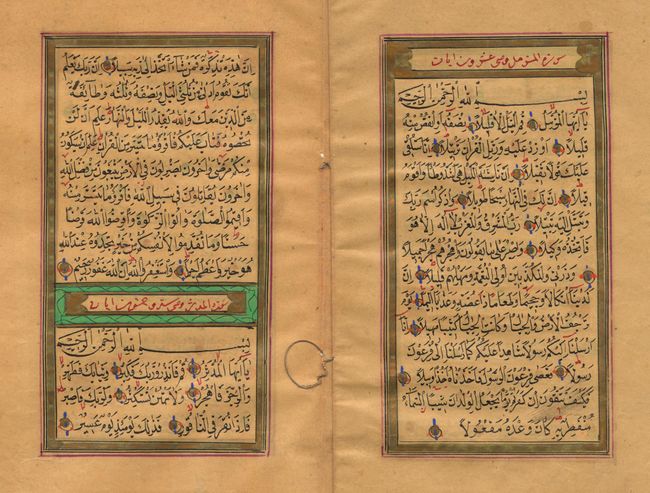 سورة المزمل وهي عشرون ايات
بسم الله الرحمن الرحيم
يا ايها المزمل قم الليل الا قليلا نصفه او انقص منه
قليلا او زد عليه ورتل القران ترتيلا انا سنلقي
عليك قولا ثقيلا ان ناشئة الليل هي اشد وطأ واقوم
قيلا ان لك في النهار سبحا طويلا واذكر اسم ربك
وتبتل اليه تبتيلا رب المشرق والمغرب لا اله الا هو
فاتخذه وكيلا واصبر على ما يقولون واهجرهم هجرا جميلا
وذرني والمكذبين اولي النعمة ومهلهم قليلا ان
لدينا انكالا وجحيما وطعاما ذا غصة وعذابا اليما يوم
ترجف الارض والجبال وكانت الجبال كثيبا مهيلا انا
ارسلنا اليكم رسولا شاهدا عليكم كما ارسلنا الى فرعون
رسولا فعصى فرعون الرسول فاخذناه اخذا وبيلا
فكيف تتقون ان كفرتم يوما يجعل الولدان شيبا السماء
منفطر به كان وعده مفعولا
ان هذه تذكرة فمن شاء اتخذ الى ربه سبيلا ان ربك يعلم
انك تقوم ادنى من ثلثي الليل ونصفه وثلثه وطائفة
من الذين معك والله يقدر الليل والنهار علم ان لن
تحصوه فتاب عليكم فاقرؤا ما تيسر من القران علم ان سيكون
منكم مرضى واخرون يضربون في الارض يبتغون من فضل الله
واخرون يقاتلون في سبيل الله فاقرؤا ما تيسر منه
واقيموا الصلوة واتوا الزكوة واقرضوا الله قرضا
حسنا وما تقدموا لانفسكم من خير تجدوه عند الله
هو خيرا واعظم اجرا واستغفروا الله ان الله غفور رحيم
سورة المدثر وهي ست وخمسون ايات
بسم الله الرحمن الرحيم
يا ايها المدثر قم فانذر وربك فكبر وثيابك فطهر
والرجز فاهجر ولا تمنن تستكثر ولربك فاصبر
فاذا نقر في الناقور فذلك يومئذ يوم عسير